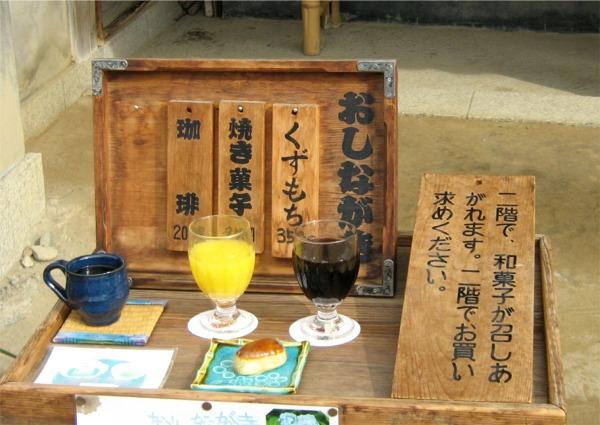 おしながき
くずもち
35
焼き菓子
珈琲
20
二階で、和菓子が召しあ
がれます。二階でお買い
求めください。
おしながき